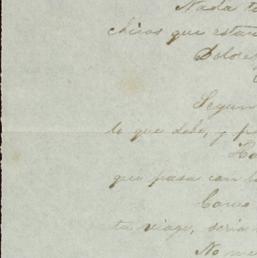 Nada te
chicos que estan
Dolore
Segun
lo que dile, y p
que pasa con l
Como
tu viage, seria
No me